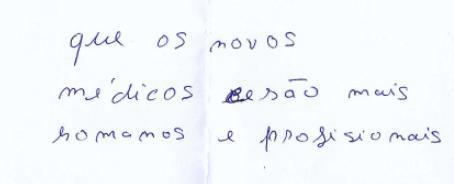 que os novos
médicos serão mais
homanos e profisionais